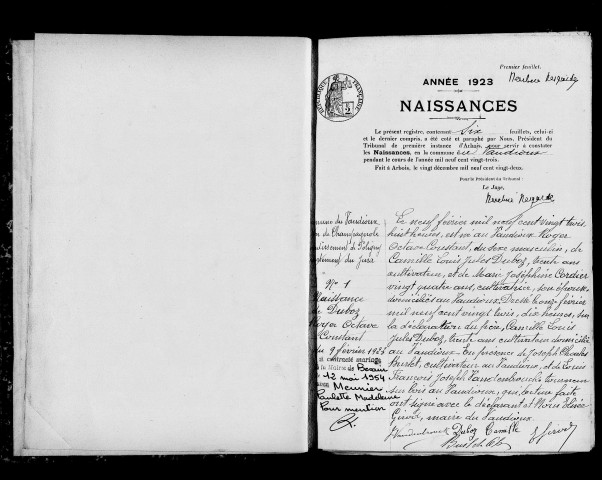 Premier feuillet.
ANNÉE 1923
NAISSANCES
Le présent registre, contenant Six feuillets, celui-ci
et le dernier compris, a été coté et paraphé par Nous, Président du
Tribunal de première instance d'Arbois, pour servir à constater
les Naissances, en la commune du Vaudioux
pendant le cours de l'année mil neuf cent vingt-trois.
Fait à Arbois, le vingt décembre mil neuf cent vingt-deux.
Pour le Président du Tribunal :
Le Juge,
RÉPUBLIQUE FRANÇAISE
du Vaudioux
de Champagnole
du Jura
N° 1
Naissance
de Duboz
Roger Octave
Constant
du 9 février 1923
contracté mariage
à la Mairie de
12 mai 1954
avec Meunier
Paulette Madeleine
Pour mention
Le neuf février mil neuf cent vingt trois,
huit heures, est né au Vaudioux Roger
Octave Constant, du sexe masculin, de
Camille Louis Jules Duboz, trente ans
cultivateur, et de Marie Joséphine Cordier
vingt quatre ans, cultivatrice, son épouse,
domiciliés au Vaudioux. Dressé le onze février
mil neuf cent vingt trois, dix heures, sur
la déclaration du père, Camille Louis
Jules Duboz, trente ans cultivateur domicilié
au Vaudioux. En présence de Joseph Charles
cultivateur au Vaudioux, et de
François Joseph tourneur
sur bois au Vaudioux, qui, lecture faite
ont signé avec le déclarant et Nous
Girod, maire du Vaudioux.
Duboz Camille Girod